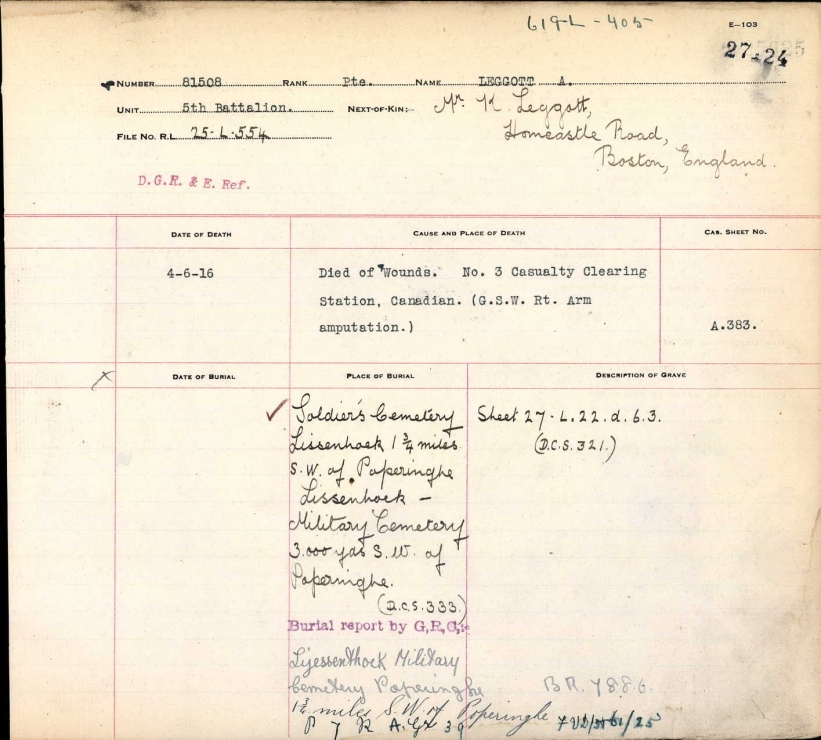 619-L-405
E-103
27-24
NUMBER 81508 RANK Pte. NAME LEGGOTT A.
UNIT 5th Battalion. NEXT-OF-KIN:- Mr. K. Leggott,
Horncastle Road,
Boston, England.
FILE NO. R.L. 25-L-554
D.G.R. & E. Ref.
DATE OF DEATH CAUSE AND PLACE OF DEATH CAS. SHEET NO.
4-6-16 Died of Wounds. No. 3 Casualty Clearing
Station, Canadian. (G.S.W. Rt. Arm
amputation.) A.383.
DATE OF BURIAL PLACE OF BURIAL DESCRIPTION OF GRAVE
Soldier's Cemetery Sheet 27-L.22.d.6.3.
Lissenhoek 1 3/4 miles (D.C.S.321.)
S.W. of Poperinghe
Lissenhoek -
Military Cemetery
3.000 yds S.W. of
Poperinghe.
(D.C.S.333.)
Burial report by G.R.C.:-
Lijessenthock Military
Cemetery Poperinghe B.R. 7886.
1 3/4 miles S.W. of Poperinghe
P 7 R A. Gr 39